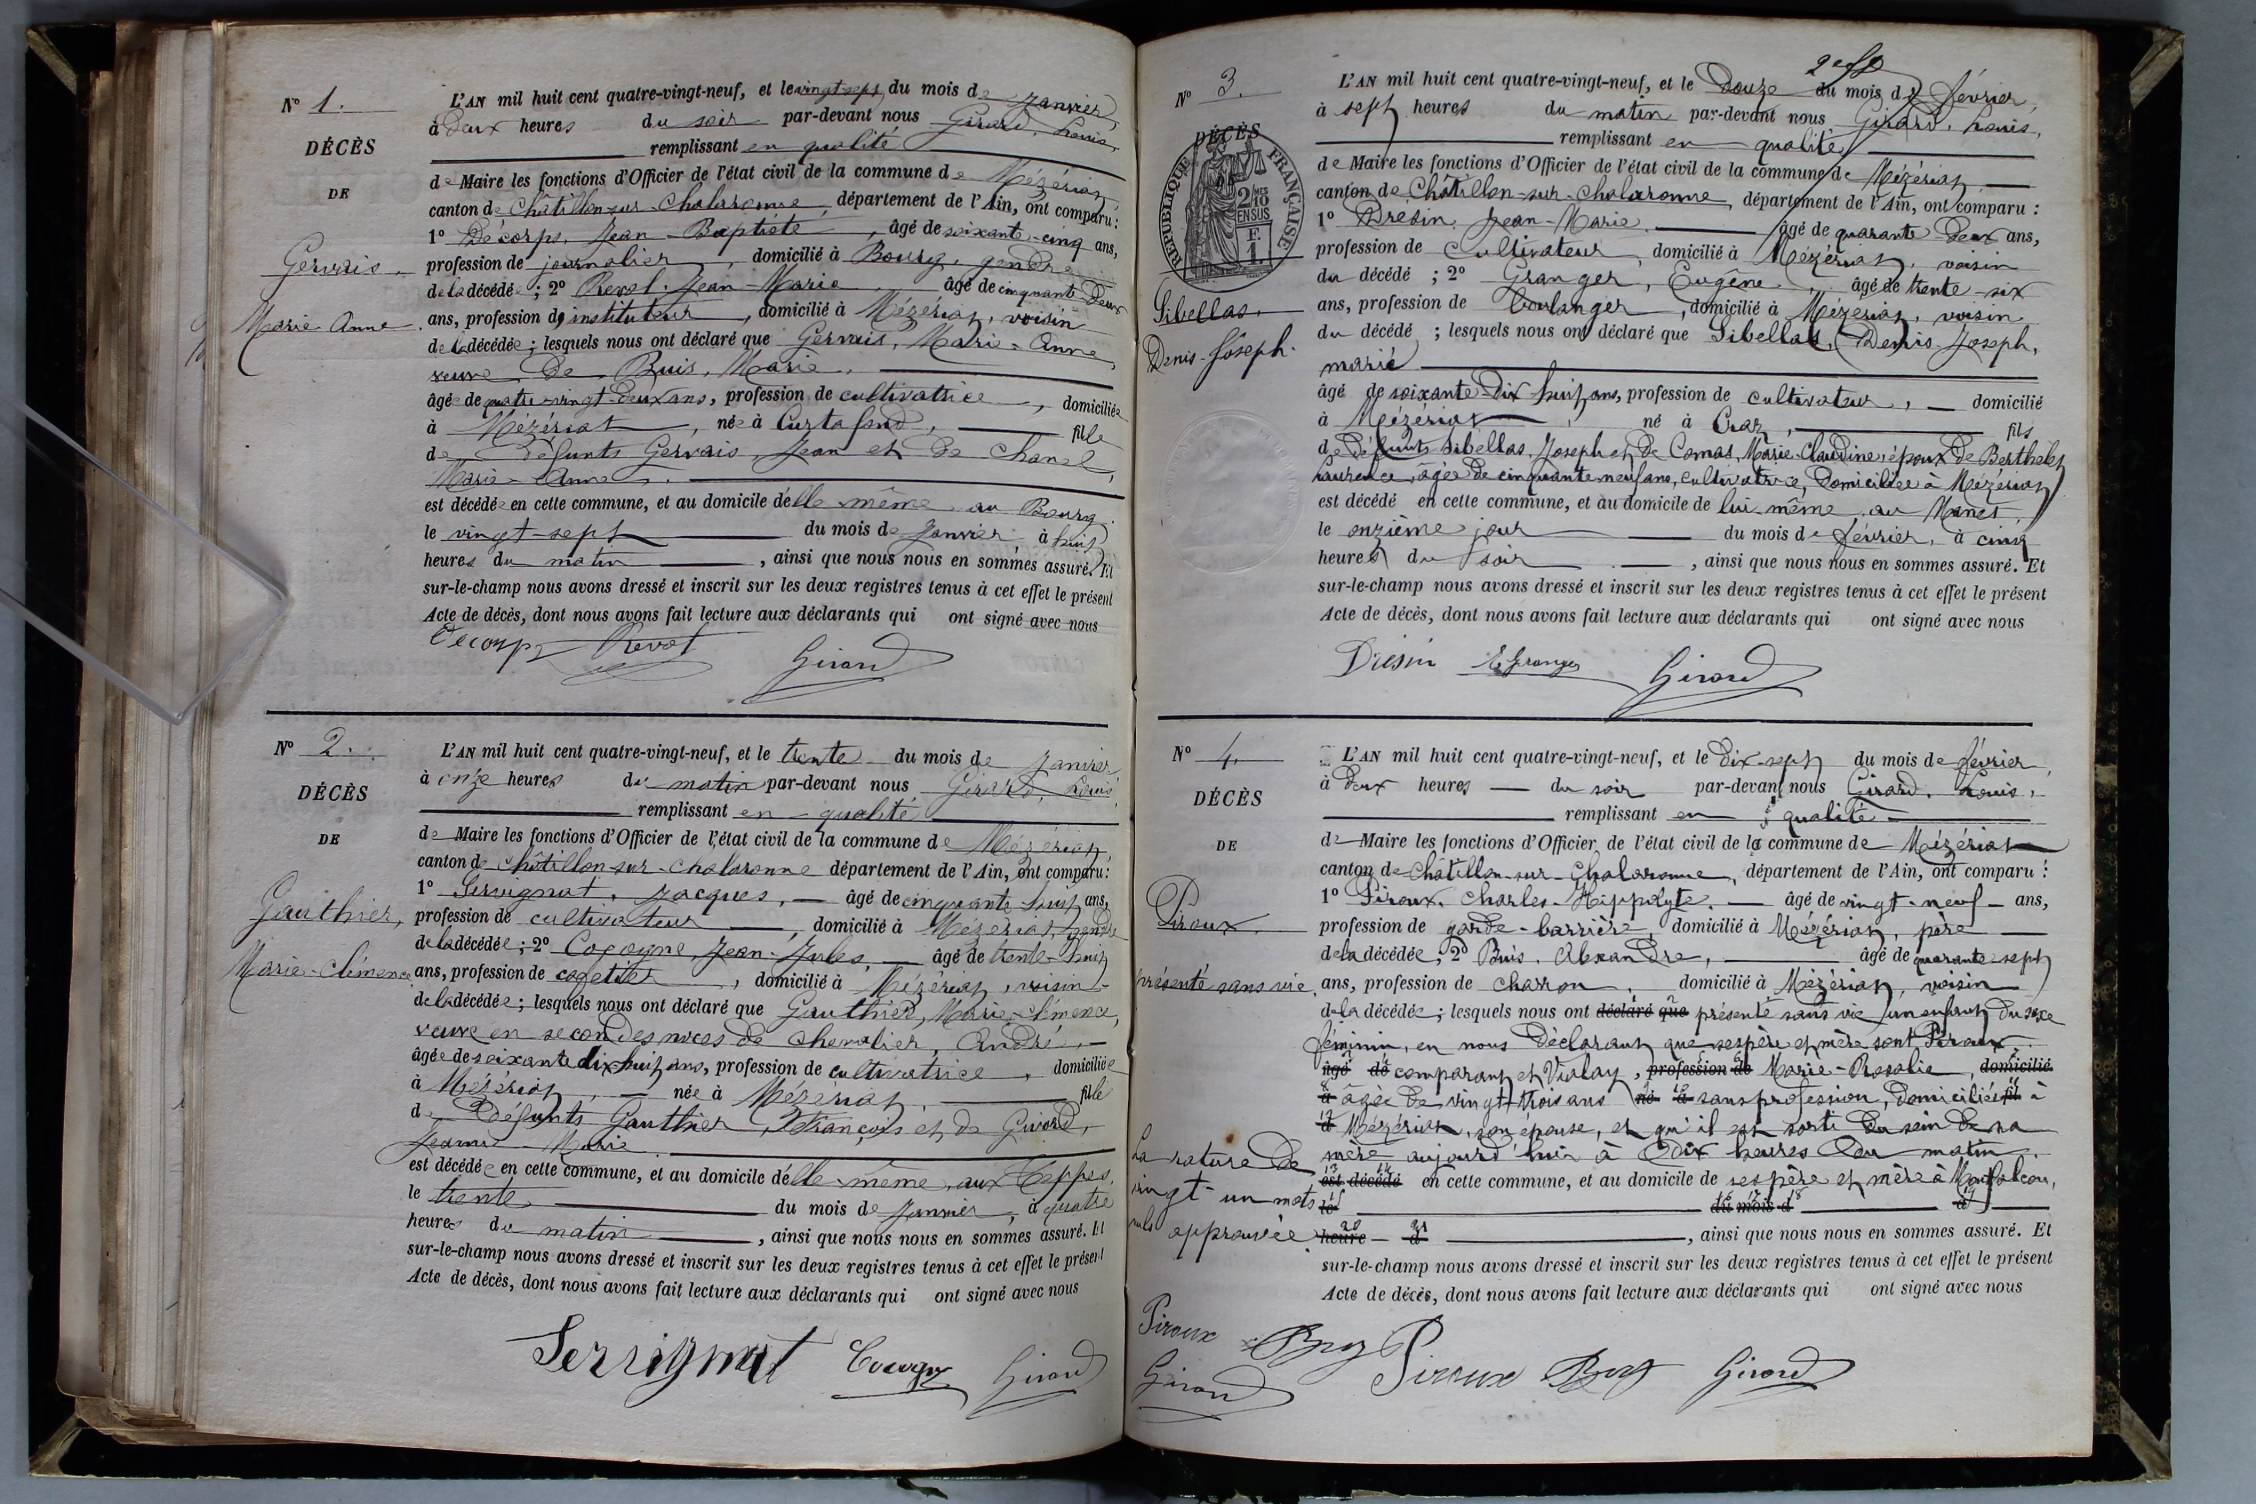 N° 1.
DÉCÈS
DE
Gervais,
Marie-Anne.
L'AN mil huit cent quatre-vingt-neuf, et le vingt-sept du mois de Janvier,
à deux heures du soir par-devant nous Girard, Louis,
remplissant en qualité
de Maire les fonctions d'Officier de l'état civil de la commune de Mézériat,
canton de Châtillon-sur-Chalaronne, département de l'Ain, ont comparu :
1° Décorps, Jean-Baptiste, âgé de soixante-cinq ans,
profession de journalier, domicilié à Bourg, gendre
de la décédée ; 2° Revol, Jean-Marie, âgé de cinquante-deux
ans, profession d'instituteur, domicilié à Mézériat, voisin
de la décédée ; lesquels nous ont déclaré que Gervais, Marie-Anne,
veuve de Buis, Marie,
âgée de quatre-vingt-deux ans, profession de cultivatrice, domiciliée
à Mézériat, née à Curtafond, fille
de défunts Gervais, Jean et de Chanel,
Marie-Anne,
est décédée en cette commune, et au domicile d'elle-même, au Bourg,
le vingt-sept du mois de Janvier à huit
heures du matin, ainsi que nous nous en sommes assuré. Et
sur-le-champ nous avons dressé et inscrit sur les deux registres tenus à cet effet le présent
Acte de décès, dont nous avons fait lecture aux déclarants qui ont signé avec nous
Decorps Revol Girard
N° 2.
DÉCÈS
DE
Gauthier,
Marie-Clémence
L'AN mil huit cent quatre-vingt-neuf, et le trente du mois de Janvier
à onze heures du matin par-devant nous Girard, Louis,
remplissant en qualité
de Maire les fonctions d'Officier de l'état civil de la commune de Mézériat,
canton de Châtillon-sur-Chalaronne département de l'Ain, ont comparu :
1° Serrignat, Jacques, âgé de cinquante-huit ans,
profession de cultivateur, domicilié à Mézériat, gendre
de la décédée ; 2° Cogogne, Jean-Jules, âgé de trente-huit
ans, profession de cogetier, domicilié à Mézériat, voisin
de la décédée ; lesquels nous ont déclaré que Gauthier, Marie-Clémence,
veuve en secondes noces de Chevalier, André,
âgée de soixante dix-huit ans, profession de cultivatrice, domiciliée
à Mézériat, née à Mézériat, fille
de défunts Gauthier, François et de Givord,
Jeanne-Marie
est décédée en cette commune, et au domicile d'elle-même, aux Teppes,
le trente du mois de Janvier, à quatre
heures du matin, ainsi que nous nous en sommes assuré. Et
sur-le-champ nous avons dressé et inscrit sur les deux registres tenus à cet effet le présent
Acte de décès, dont nous avons fait lecture aux déclarants qui ont signé avec nous
Serrignat Girard
N° 3.
DÉCÈS
DE
RÉPUBLIQUE FRANÇAISE
2/10 EN SUS
Sibellas,
Denis-Joseph.
L'AN mil huit cent quatre-vingt-neuf, et le douze du mois de février,
à sept heures du matin par-devant nous Girard, Louis,
remplissant en qualité
de Maire les fonctions d'Officier de l'état civil de la commune de Mézériat,
canton de Châtillon-sur-Chalaronne, département de l'Ain, ont comparu :
1° Drésin, Jean-Marie, âgé de quarante-deux ans,
profession de cultivateur, domicilié à Mézériat, voisin
du décédé ; 2° Granger, Eugène, âgé de trente-six
ans, profession de boulanger, domicilié à Mézériat, voisin
du décédé ; lesquels nous ont déclaré que Sibellas, Denis-Joseph,
marié
âgé de soixante-dix huit ans, profession de cultivateur, domicilié
à Mézériat, né à Craz, fils
de défunts Sibellas, Joseph et de Comas, Marie-Claudine, époux de Berthelet
Laurence, âgée de cinquante-neuf ans, cultivatrice, domiciliée à Mézériat
est décédé en cette commune, et au domicile de lui-même, au Manet,
le onzième jour du mois de février, à cinq
heures du soir, ainsi que nous nous en sommes assuré. Et
sur-le-champ nous avons dressé et inscrit sur les deux registres tenus à cet effet le présent
Acte de décès, dont nous avons fait lecture aux déclarants qui ont signé avec nous
Drésin E. Granger Girard
N° 4.
DÉCÈS
DE
Piroux,
présenté sans vie.
L'AN mil huit cent quatre-vingt-neuf, et le dix-sept du mois de février,
à deux heures du soir par-devant nous Girard, Louis,
remplissant en qualité
de Maire les fonctions d'Officier de l'état civil de la commune de Mézériat
canton de Châtillon-sur-Chalaronne, département de l'Ain, ont comparu :
1° Piroux, Charles-Hippolyte, âgé de vingt-neuf ans,
profession de garde-barrière, domicilié à Mézériat, père
de la décédée ; 2° Buis, Alexandre, âgé de quarante-sept
ans, profession de charron, domicilié à Mézériat, voisin
de la décédée ; lesquels nous ont déclaré que présenté sans vie un enfant du sexe
féminin, en nous déclarant que ses père et mère sont Piroux
âgé de comparant et Vialay, profession de Marie-Rosalie, domicilié
à âgée de vingt-trois ans né à sans profession, domiciliés fil à
d Mézériat, son épouse, et qu'il est sorti du sein de sa
mère aujourd'hui à dix heures du matin.
est décédé en cette commune, et au domicile de ses père et mère à Montfalcon,
le du mois d à
heure d, ainsi que nous nous en sommes assuré. Et
sur-le-champ nous avons dressé et inscrit sur les deux registres tenus à cet effet le présent
Acte de décès, dont nous avons fait lecture aux déclarants qui ont signé avec nous
La rature de
vingt-un mots
nuls
approuvée.
Piroux Buy
Girard
Piroux Buy Girard